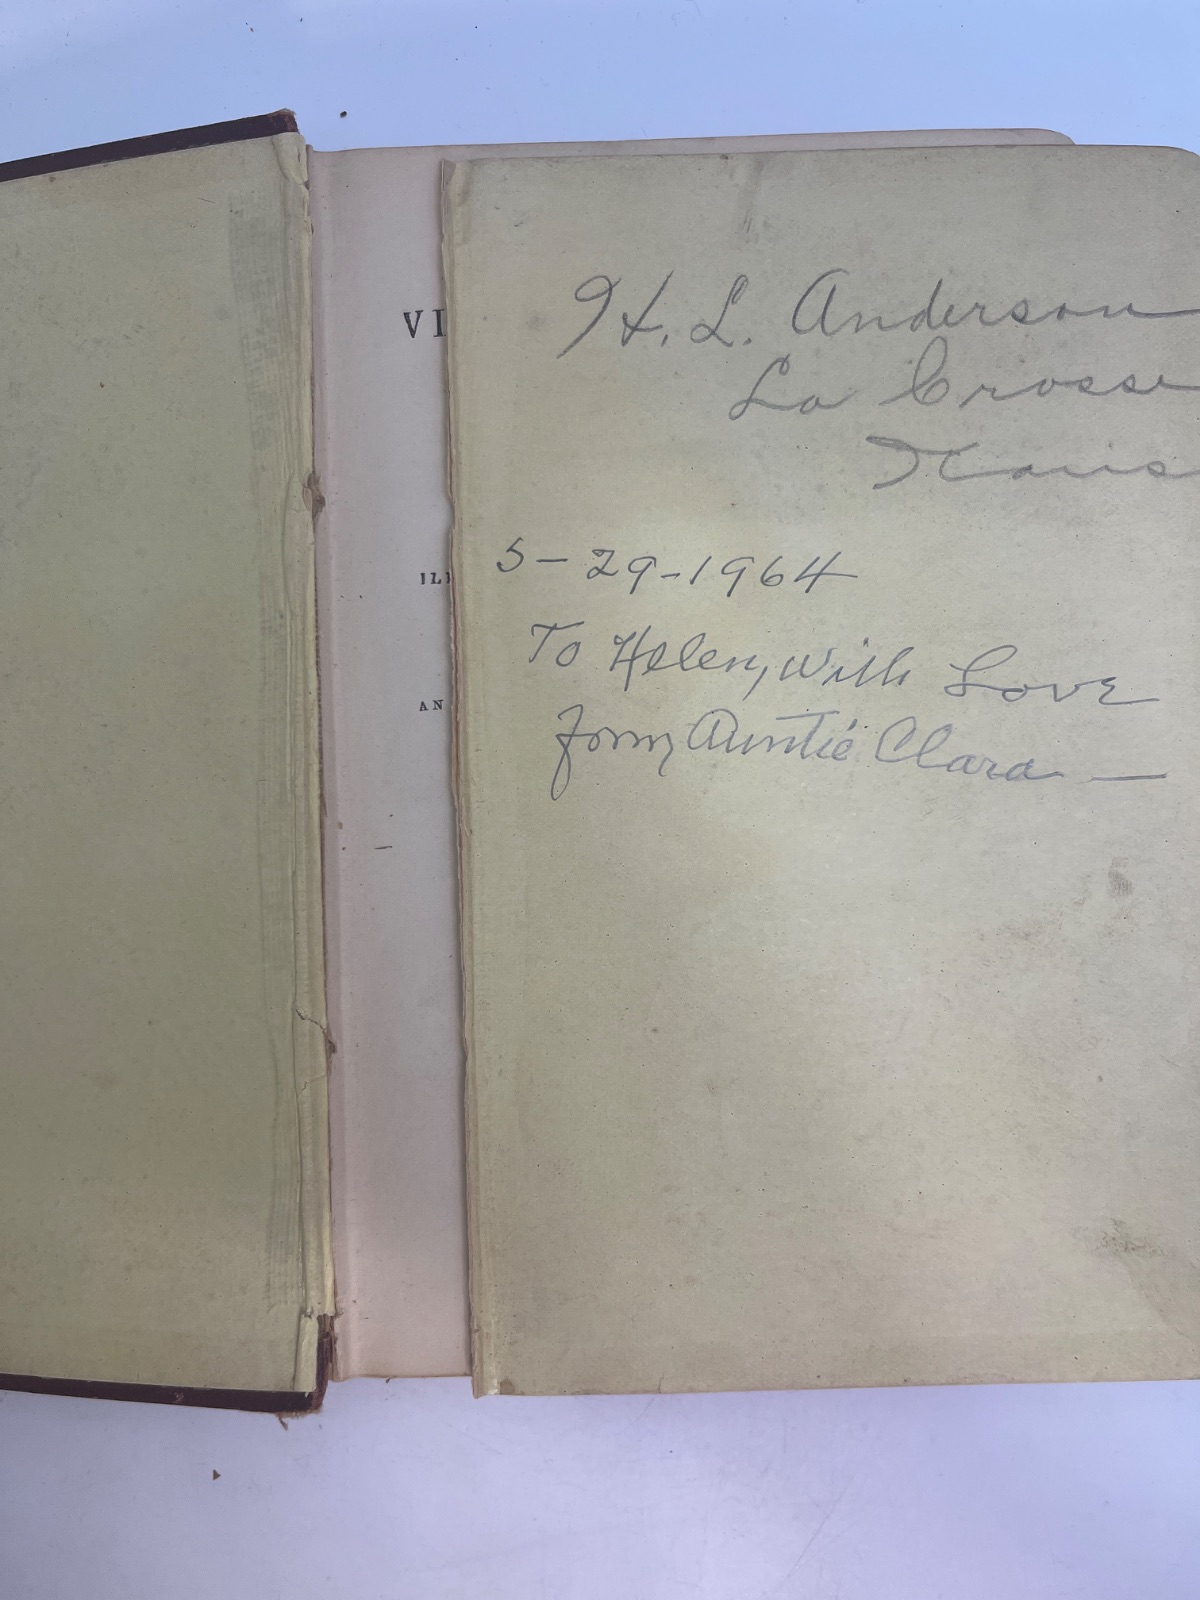 VI
H. L. Anderson
La Crosse
Kans
ILL
AN
5-29-1964
To Helen, With Love
from Auntie Clara —